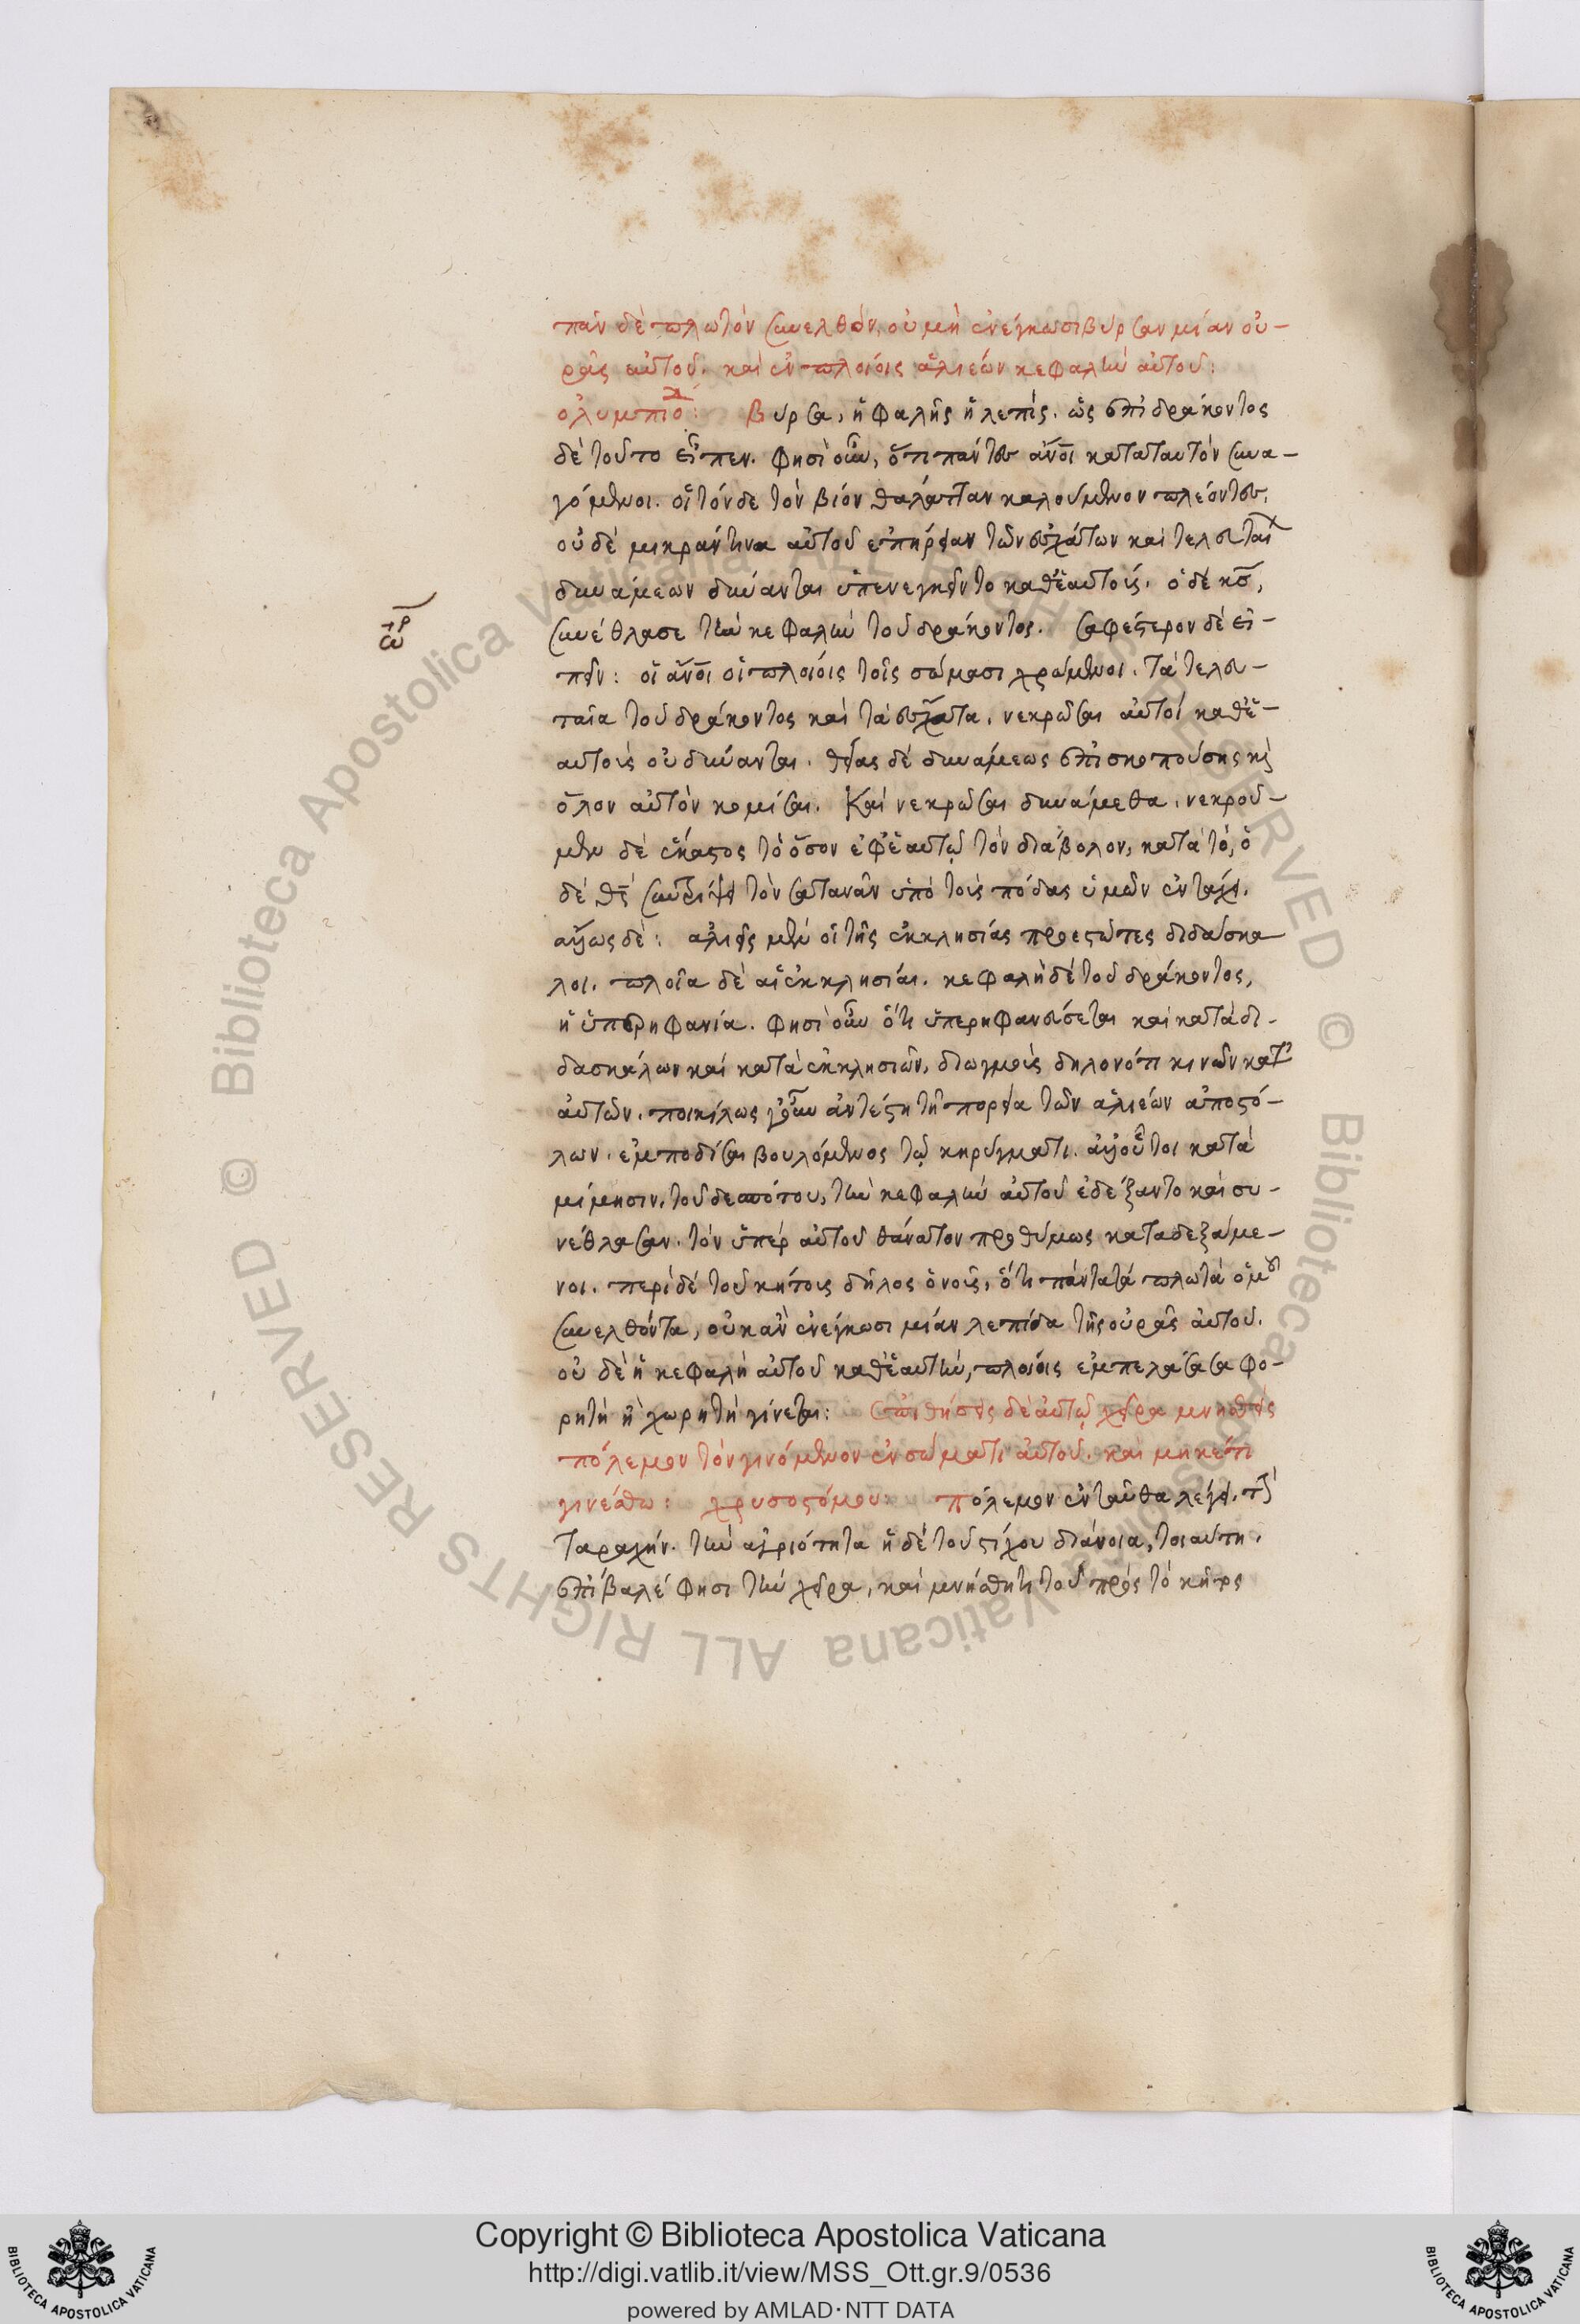 πᾶν δὲ πλωτὸν συνελθὸν, οὐ μὴ ἐνέγκωσι βύρσαν μίαν οὐ-
ρᾶς αὐτοῦ. καὶ ἐν πλοίοις ἁλιέων κεφαλὴν αὐτοῦ:
ὀλυμπιοδ: Βύρσα, ἡ φαλὴς ἡ λεπίς. ὡς ἐπὶ δράκοντος
δὲ τοῦτο εἶπεν. φησὶ οὖν, ὅτι πάντες ἄνοι κατὰ ταυτὸν συνα-
γόμενοι. οἱ τόνδε τὸν βίον θάλατταν καλούμενον πλέοντες.
οὐδὲ μικράν τινα αὐτοῦ ἐπήρειαν τῶν ἐσχάτων καὶ τελευταί
δυνάμεων δύνανται ὑπενεγκεῖν τὸ καθ' ἑαυτούς. ὁ δὲ κς,
συνέθλασε τὴν κεφαλὴν τοῦ δράκοντος. σαφέστερον δὲ εἰ-
πεῖν: οἱ ἄνοι οἱ πλοίοις τοῖς σώμασι χρώμενοι. τὰ τελευ-
ταῖα τοῦ δράκοντος καὶ τὰ ἔσχατα, νεκρῶσαι αὐτοὶ καθ' ἑ-
αυτοὺς οὐ δύνανται. θείας δὲ δυνάμεως ἐπισκοπούσης κ
ὅλον αὐτὸν κομίσαι. καὶ νεκρῶσαι δυνάμεθα. νεκροῦ-
μεν δὲ ἕκαστος τὸ ὅσον ἐφ' ἑαυτῷ τὸν διάβολον, κατὰ τό, ὁ
δὲ θς συντρίψει τὸν σατανᾶν ὑπὸ τοὺς πόδας ὑμῶν ἐν τάχει.
ἄλλως δὲ: ἁλιεῖς μὲν οἱ τῆς ἐκκλησίας προεστῶτες διδάσκα
λοι. πλοῖα δὲ αἱ ἐκκλησίαι. κεφαλὴ δὲ τοῦ δράκοντος,
ἡ ὑπερηφανία. φησὶ οὖν ὅτι ὑπερηφανεύσεται καὶ κατὰ δι-
δασκάλων καὶ κατὰ ἐκκλησιῶν, διωγμοὺς δηλονότι κινῶν κατ'
αὐτῶν. ποικίλως γοῦν ἀντέστη τῇ πορείᾳ τῶν ἁλιέων ἀποστό-
λων. ἐμποδίσαι βουλόμενος τῷ κηρύγματι. ἀλλ' οὗτοι κατὰ
μίμησιν, τοῦ δεσπότου, τὴν κεφαλὴν αὐτοῦ ἐδέξαντο καὶ συ-
νέθλασαν. τὸν ὑπὲρ αὐτοῦ θάνατον προθύμως καταδεξάμε-
νοι. περὶ δὲ τοῦ κήτους δῆλος ὁ νοῦς, ὅτι πάντα τὰ πλωτὰ ὁμοῦ
συνελθόντα, οὐκ ἂν ἐνέγκωσι μίαν λεπίδα τῆς οὐρᾶς αὐτοῦ.
οὐδὲ ἡ κεφαλὴ αὐτοῦ καθ' ἑαυτὴν, πλοίοις ἐμπελάσασα φο-
ρητὴ ἢ χωρητὴ γίνεται: ἐπιθήσεις δὲ αὐτῷ χεῖρα μνησθεὶς
πόλεμον τὸν γινόμενον ἐν σώματι αὐτοῦ. καὶ μηκέτι
γινέσθω: χρυσοστόμου: πόλεμον ἐνταῦθα λέγει. τὴ
ταραχήν. τὴν ἀγριότητα ἡ δὲ τοῦ στίχου διάνοια, τοιαύτη.
ἐπίβαλέ φησι τὴν χεῖρα, καὶ μνήσθητι τοῦ πρὸς τὸ κῆτος
Copyright © Biblioteca Apostolica Vaticana
http://digi.vatlib.it/view/MSS_Ott.gr.9/0536
powered by AMLAD·NTT DATA
BIBLIOTECA APOSTOLICA VATICANA
BIBLIOTECA APOSTOLICA VATICANA
© Biblioteca Apostolica Vaticana ALL RIGHTS RESERVED
© Biblioteca Apostolica Vaticana ALL RIGHTS RESERVED